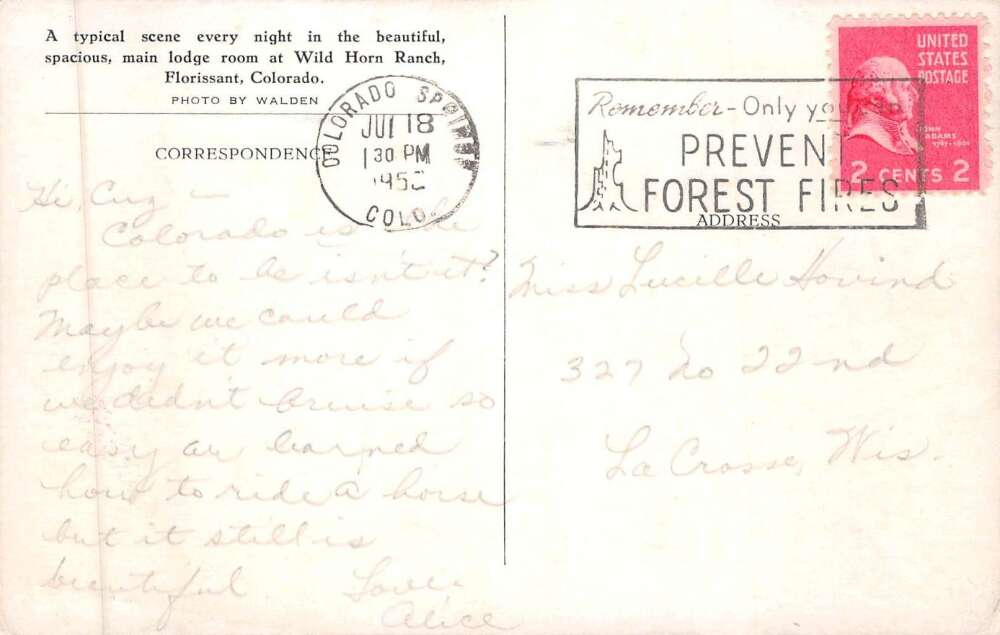 A typical scene every night in the beautiful,
spacious, main lodge room at Wild Horn Ranch,
Florissant, Colorado.
PHOTO BY WALDEN
CORRESPONDENCE
COLORADO SPRINGS
JUL 18
1 30 PM
195
COLO.
Remember - Only you can
PREVENT
FOREST FIRES
UNITED
STATES
POSTAGE
JOHN
ADAMS
1797-1801
2 CENTS 2
ADDRESS
Hi, Cuz -
Colorado is the
place to be isn't it?
Maybe we could
enjoy it more if
we didn't bruise so
easy or learned
how to ride a horse
but it still is
beautiful Love
Alice
Miss Lucille Hovind
327 So 22nd
La Crosse, Wis.